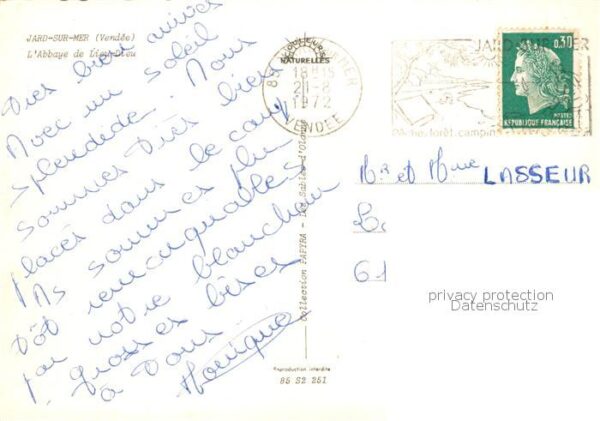 JARD-SUR-MER (Vendée)
L'Abbaye de Lieu-Dieu
Très bien arrivés
Avec un soleil
splendide. Nous
sommes très bien
placés dans le camp
sommes plu
tôt remarquables
par notre blancheur
grosses bises
à Vous
Monique
Collection PAPYRA - Les Sables-d'Olonne
Reproduction interdite
85 S2 251
NATURELLES
18H15
21-8
1972
VENDEE
JARD-SUR-MER
Pêche, forêt, camping
0,30
POSTES
REPUBLIQUE FRANÇAISE
Mr et Mme LASSEUR
61
privacy protection
Datenschutz